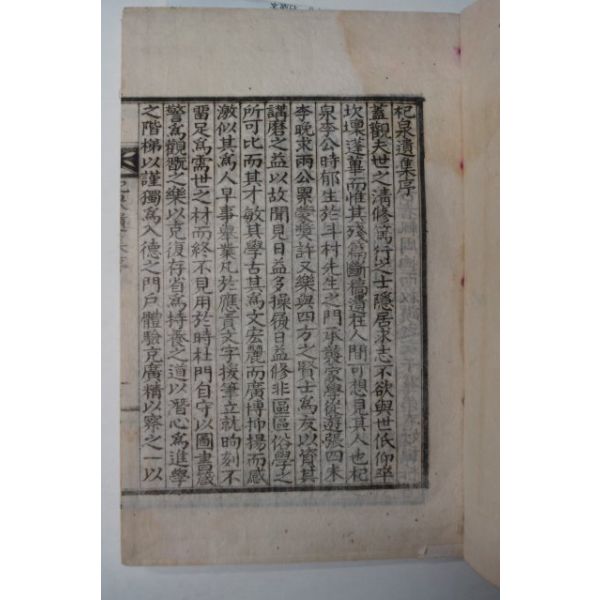 杞泉遺集序
蓋觀夫世之淸修篤行之士隱居求志不欲與世低仰卒
坎壈蓬蓽而惟其殘篇斷稿遺在人間可想見其人也杞
泉李公時郁生於斗村先生之門承襲家學從遊張四未
李晩求兩公累蒙奬許又樂與四方之賢士爲友以資其
講磨之益以故聞見日益多操履日益修非區區俗學之
所可比而其才敏其學古其爲文宏麗而廣博抑揚而感
激似其爲人早事擧業凡於應責文字援筆立就晌刻不
雷足爲需世之材而終不見用於時杜門自守以圖書箴
警爲觀翫之樂以克復存省爲持養之道以潛心爲進學
之階梯以謹獨爲入德之門戶體驗克廣精以察之一以